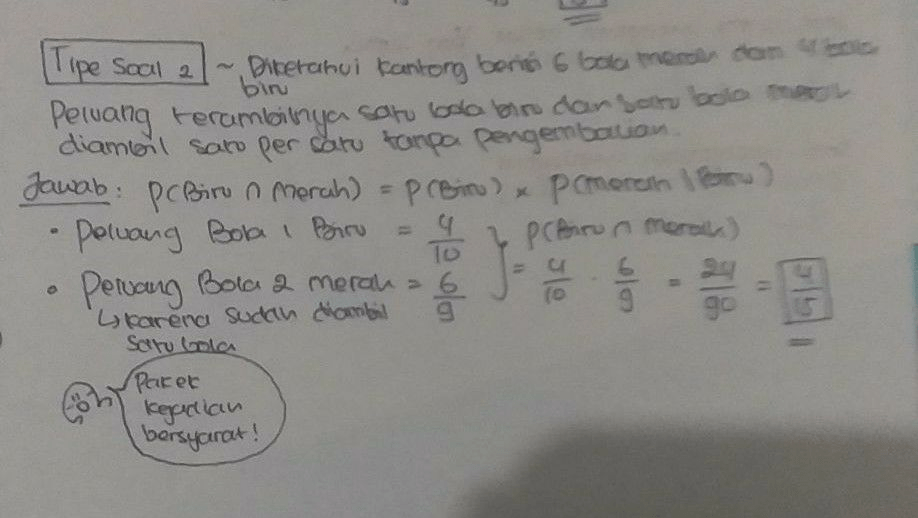 Tipe Soal 2 ~ Diketahui kantong berisi 6 bola merah dan 4 bola
biru
Peluang terambilnya satu bola biru dan satu bola merah
diambil satu per satu tanpa pengembalian.
Jawab : P(Biru ∩ Merah) = P(Biru) × P(Merah | Biru)
• Peluang Bola 1 Biru = 4/10 } P(Biru ∩ Merah)
• Peluang Bola 2 merah = 6/9 = 4/10 · 6/9 = 24/90 = 4/15
↳ karena sudah diambil
satu bola
Paket
kejadian
bersyarat!